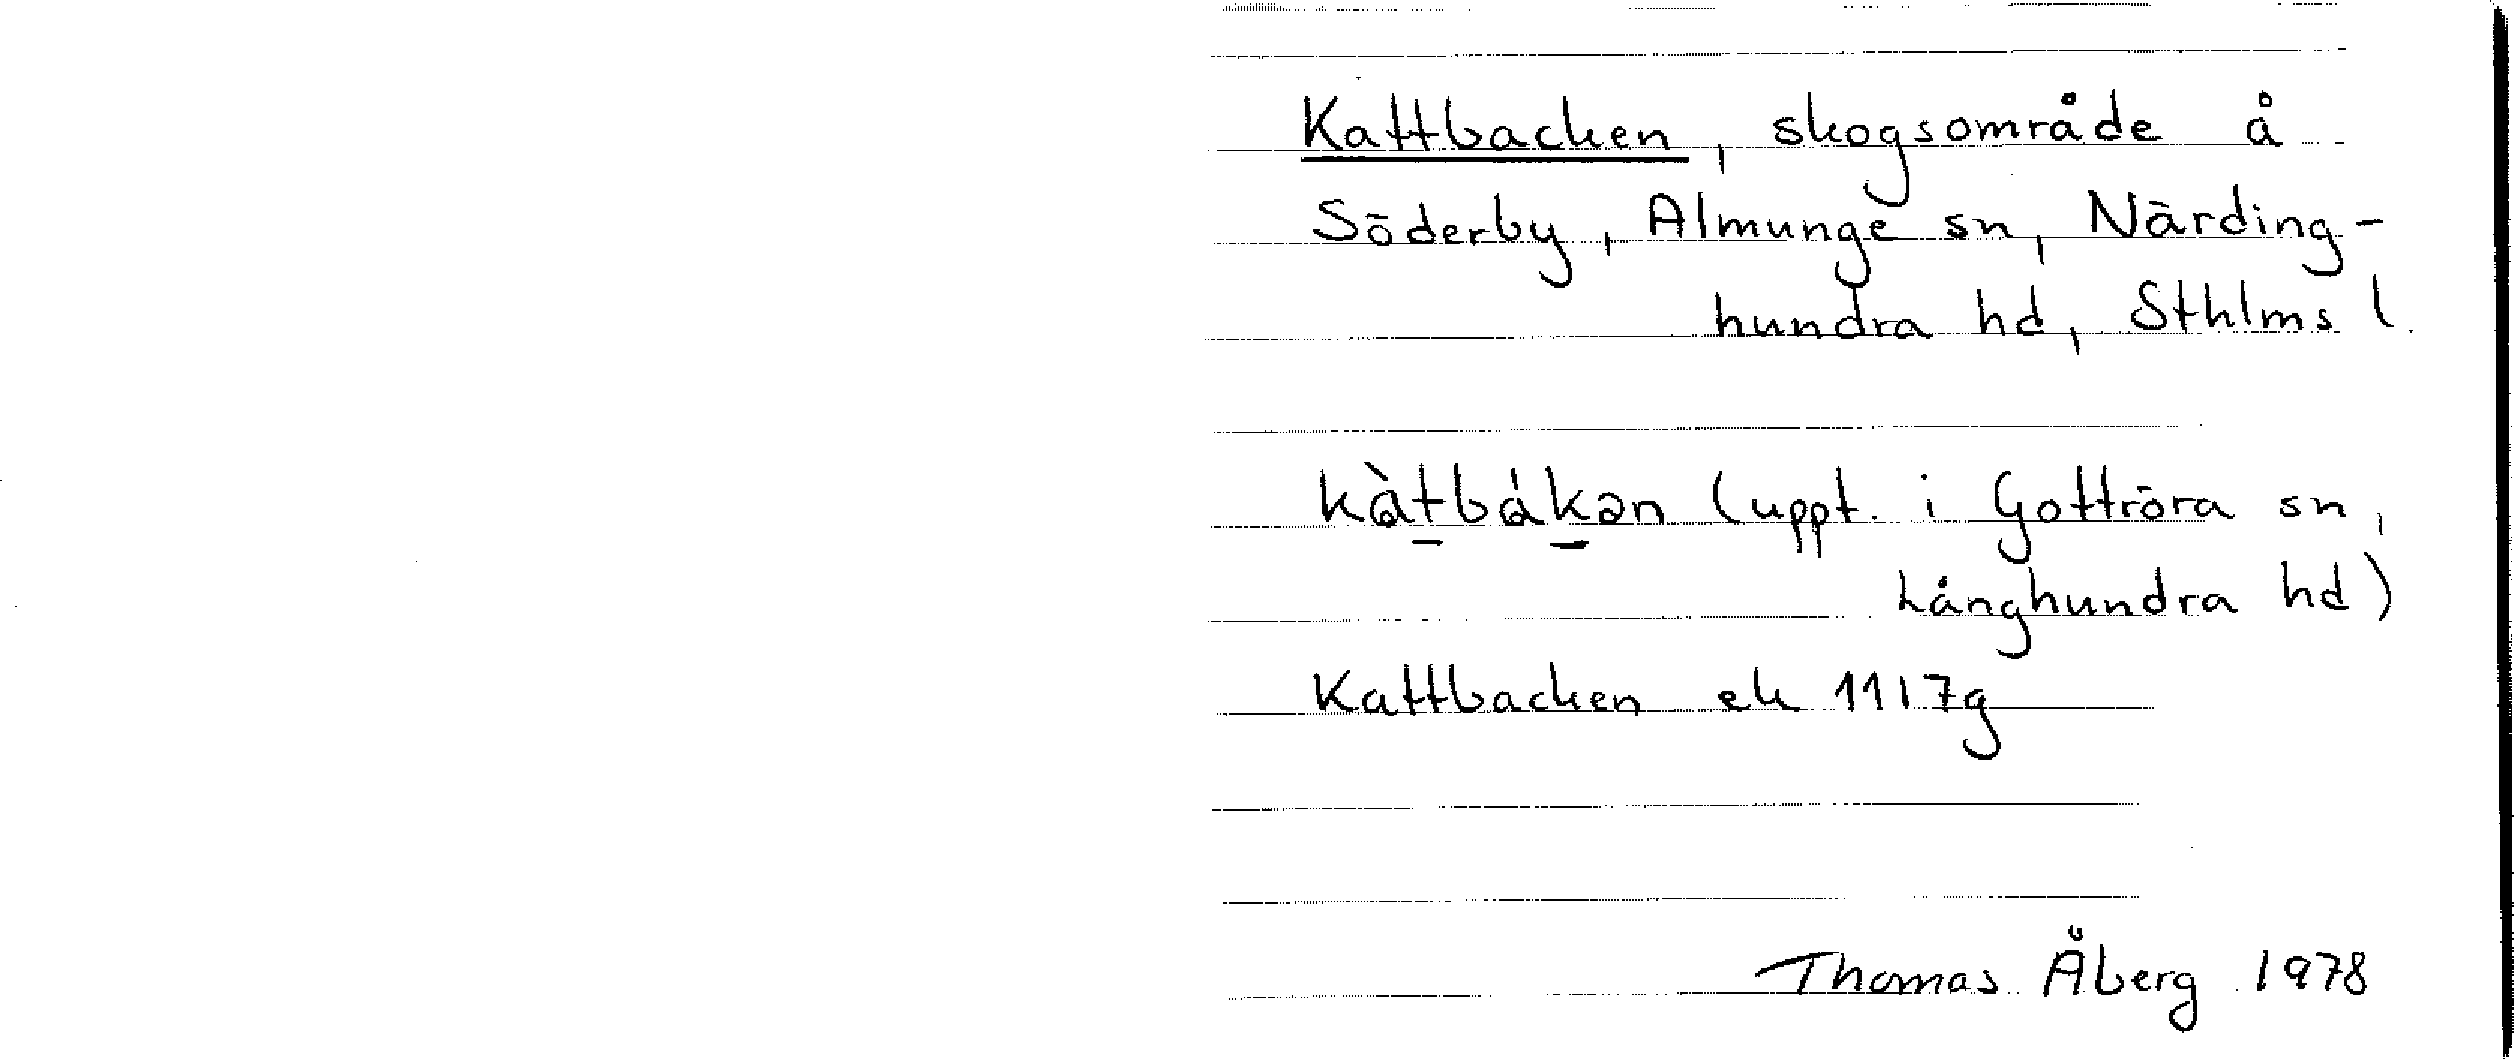 Kattbacken, skogsområde å
Söderby, Almunge sn, Närding-
hundra hd, Sthlms l.
kàt̲bák̲ən (uppt. i Gottröra sn,
Långhundra hd)
Kattbacken ek 11I7g
Thomas Åberg 1978